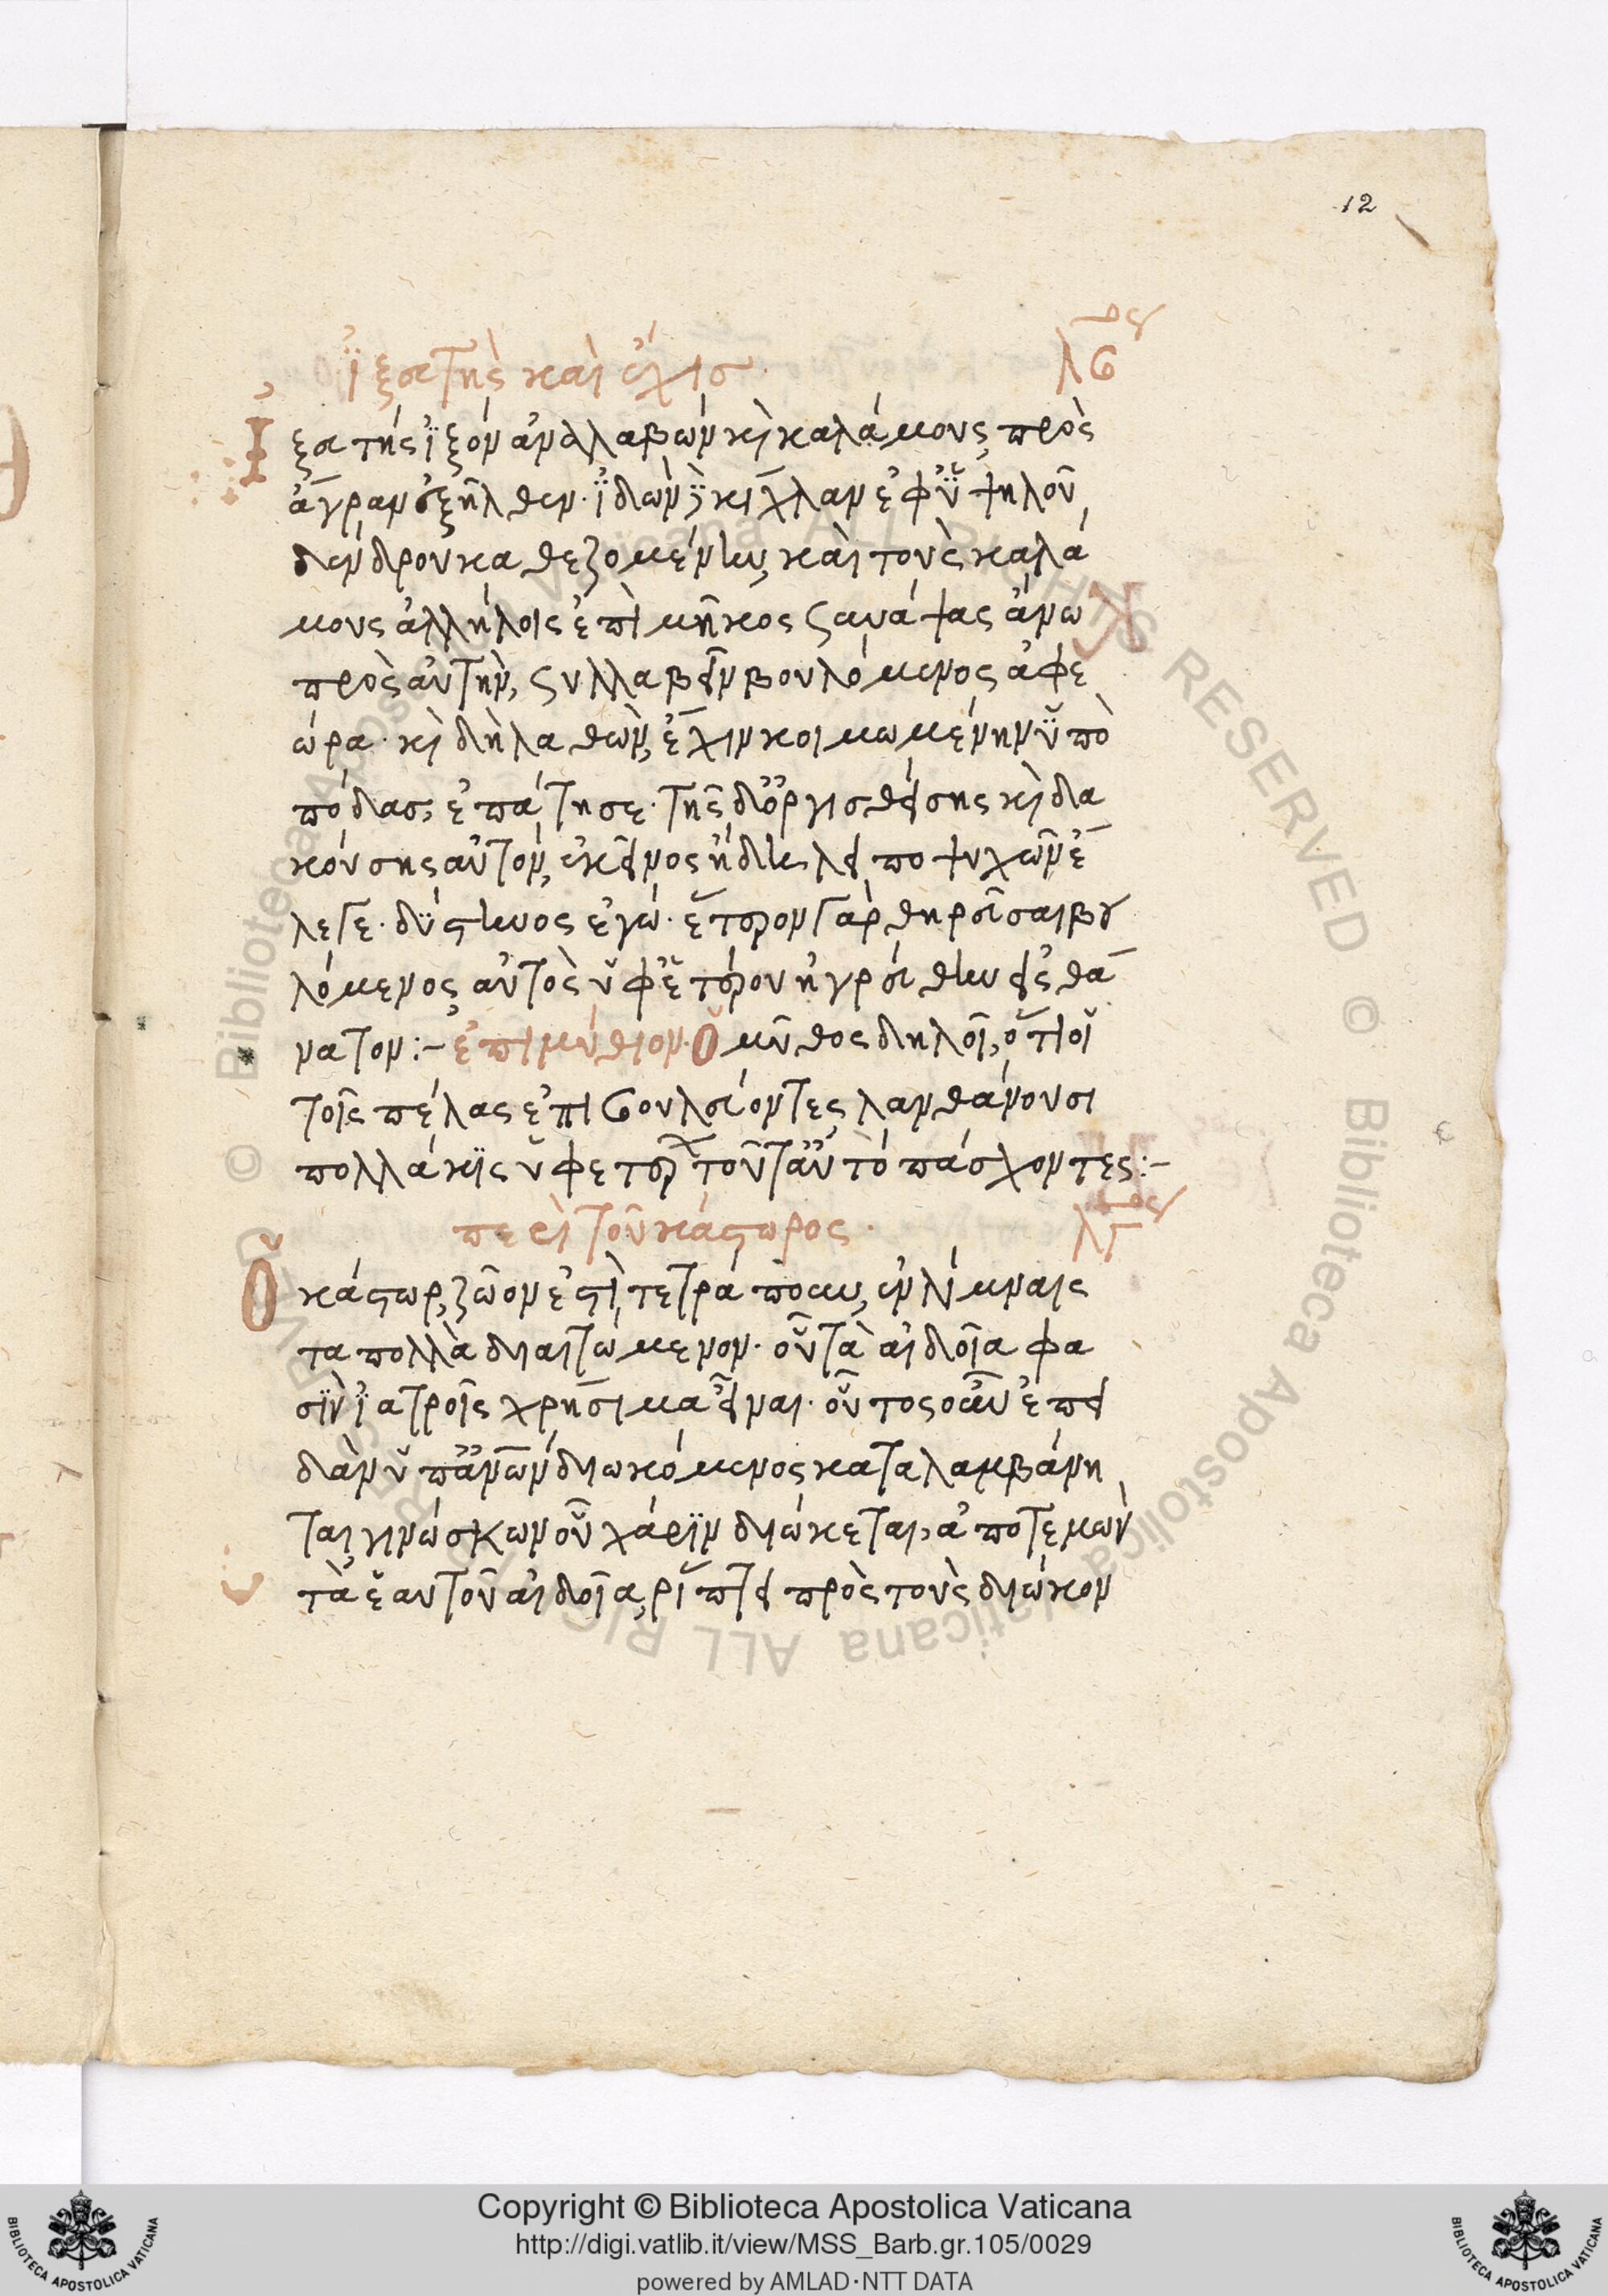 12
ἰξευτὴς καὶ ἔχις. λβος
Ἰξευτὴς ἰξὸν ἀναλαβὼν κὶ καλάμους, πρὸς
ἄγραν ἐξῆλθεν. ἰδὼν δὲ κίχλαν ἐφ' ὑψηλοῦ
δένδρου καθεζομένην, καὶ τοὺς καλά
μους ἀλλήλοις ἐπὶ μῆκος συνάψας ἄνω
πρὸς αὐτὴν, συλλαβεῖν βουλόμενος ἀφε
ώρα. κὶ δὴ λαθὼν, ἔχιν κοιμωμένην ὑπὸ
πόδας, ἐπάτησε. τῆς δ' ὀργισθείσης κὶ δα
κούσης αὐτὸν, ἐκεῖνος ἤδη λειποψυχῶν ἔ
λεγε. δύστηνος ἐγώ. ἕτερον γὰρ θηρεῦσαι βου
λόμενος, αὐτὸς ὑφ' ἑτέρου ἠγρεύθην εἰς θά
νατον :- ἐπιμύθιον. Ὁ μῦθος δηλοῖ, ὅτι οἱ
τοῖς πέλας ἐπιβουλεύοντες, λανθάνουσι
πολλάκις ὑφ' ἑτέρων τοῦτ' αὐτὸ πάσχοντες :-
περὶ τοῦ κάστωρος. λγος
Ὁ κάστωρ, ζῶον ἐστὶ τετράπουν, ἐν λίμναις
τα πολλὰ διαιτώμενον. οὗ τὰ αἰδοῖα φα
σὶν ἰατροῖς χρήσιμα εἶναι. οὗτος οὖν ἐπει
δὰν ὑπ' ἀν̅ω̅ν διωκόμενος καταλαμβάνη
ται, γινώσκων οὗ χάριν διώκεται, ἀποτεμὼν
τὰ ἑαυτοῦ αἰδοῖα, ῥίπτει πρὸς τοὺς διώκον
Copyright © Biblioteca Apostolica Vaticana
http://digi.vatlib.it/view/MSS_Barb.gr.105/0029
powered by AMLAD·NTT DATA
BIBLIOTECA APOSTOLICA VATICANA
BIBLIOTECA APOSTOLICA VATICANA